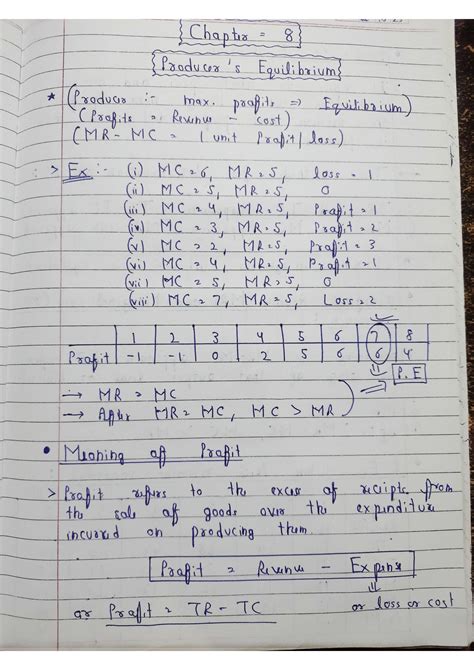 {Chapter = 8}
{Producer's Equilibrium}
* (Producer :- max. profits => Equilibrium)
(Profits = Revenue - cost)
(MR - MC = 1 unit Profit/loss)
> Ex :- (i) MC = 6, MR = 5, loss = 1
(ii) MC = 5, MR = 5, 0
(iii) MC = 4, MR = 5, Profit = 1
(iv) MC = 3, MR = 5, Profit = 2
(v) MC = 2, MR = 5, Profit = 3
(vi) MC = 4, MR = 5, Profit = 1
(vii) MC = 5, MR = 5, 0
(viii) MC = 7, MR = 5, Loss = 2
1 2 3 4 5 6 7 8
Profit -1 -1 0 2 5 6 6 4
P.E
→ MR = MC
→ After MR = MC, MC > MR
• Meaning of Profit
> Profit refers to the exces of reciepts from
the sale of goods over the expenditure
incurred on producing them.
Profit = Revenue - Expense
or Profit = TR - TC or loss or cost